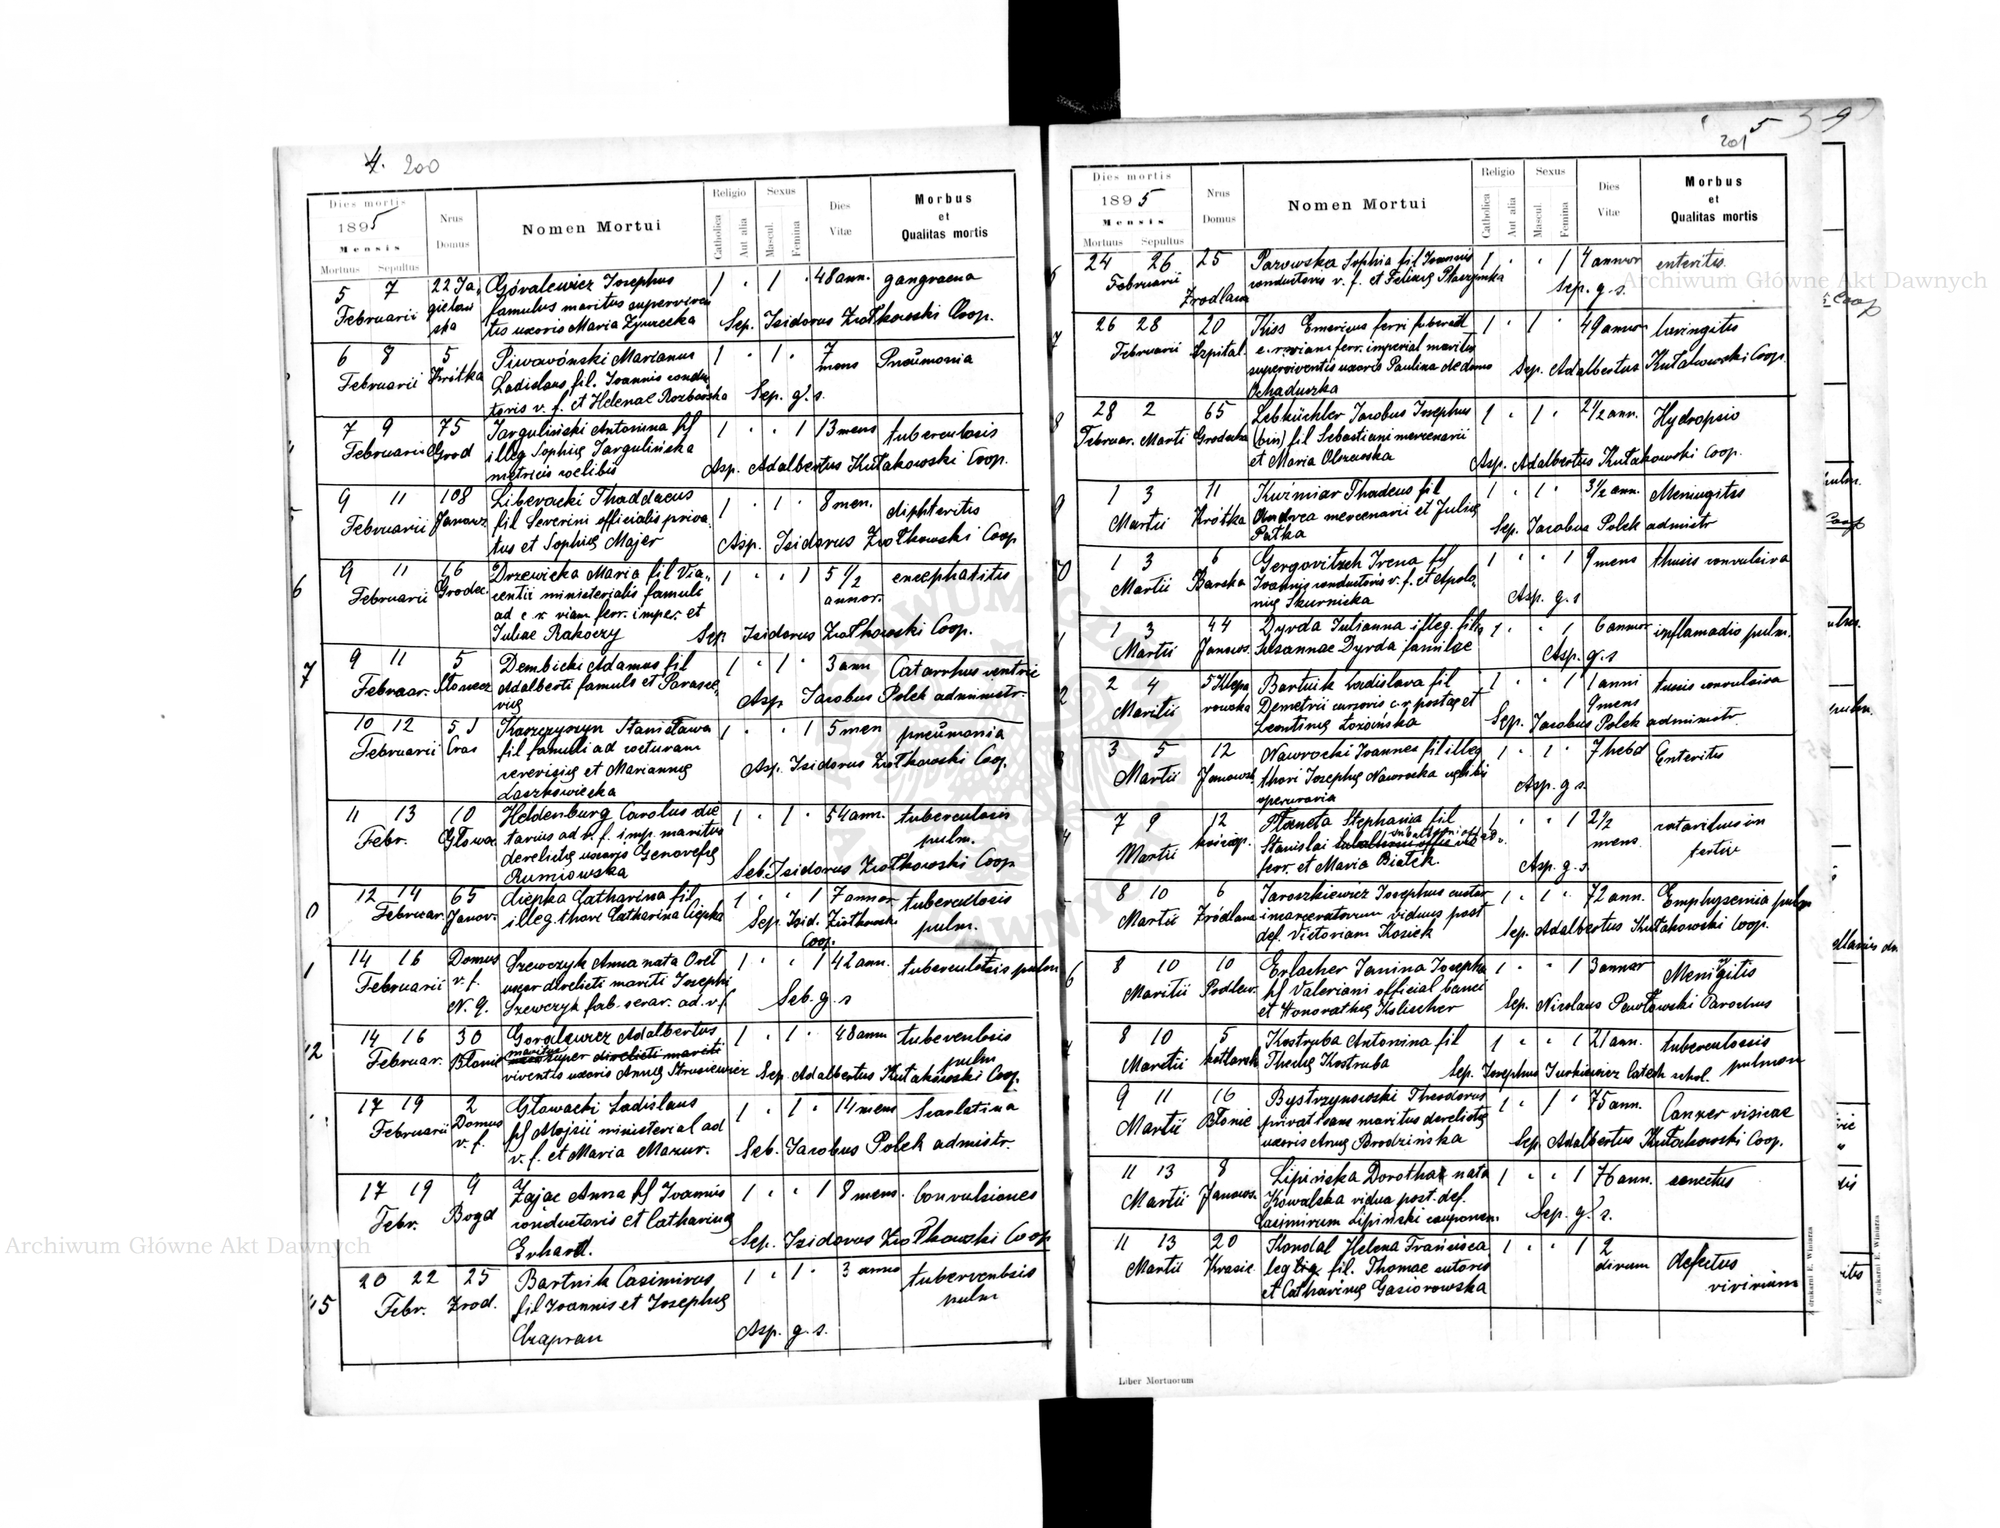 4. 200
Dies mortis
1895
Mensis
Mortuus Sepultus
Nrus Domus
Nomen Mortui
Religio
Catholica
Aut alia
Sexus
Mascul.
Femina
Dies Vitæ
Morbus
et
Qualitas mortis
5 7 22 Ja- Góralewicz Josephus 1 . 1 . 48 ann. gangraena
Februarii gielow famulus maritus superviven
ska tis uxoris Maria Sep. Isidorus Ziołkowski Coop.
6 8 5 Marianus 1 . 1 . 7 Pneumonia
Februarii Krótka Ladislaus fil. Joannis condu mens
ctoris v. f. et Helenae Sep. g. s.
7 9 75 Antonina fil 1 . . 1 13 mens tuberculosis
Februarii Grod illeg Sophię
coelibis Asp. Adalbertus Kułakowski Coop.
9 11 108 Thaddaeus 1 . 1 . 8 men. diphteritis
Februarii Janow fil Severini officialis priva
tus et Sophię Majer Asp. Isidorus Ziołkowski Coop
6 9 11 16 Drzewicka Maria fil Vin- 1 . . 1 5 1/2 encephalitis
Februarii Grodec. centii ministerialis famuli annor.
ad c. r. viam ferr. imper. et
Juliae Rakoczy Sep Isidorus Ziołkowski Coop.
7 9 11 5 Dembicki Adamus fil 1 . 1 . 3 ann Catarrhus ventric
Februar. Słonecz Adalberti famuli et Parasce-
vię Asp Jacobus Polek administr.
10 12 5 Stanisława 1 . . 1 5 men pneumonia
Februarii fil famuli ad cocturam
cerevisię et Mariannę Asp. Isidorus Ziołkowski Coop.
11 13 10 Heldenburg Carolus die 1 . 1 . 54 ann. tuberculosis
Febr. Głowac tarius ad v. f. imp. maritus pulm.
derelictę uxoris Genovefę Seb. Isidorus Ziołkowski Coop
Rumiowska
12 14 65 Ciepka Catharina fil 1 . . 1 7 annor tuberculosis
Februar. Janov. illeg. thori Catharina Ciepka Sep. Isid. Ziołkowski pulm.
Coop.
1 14 16 Domus Szewczyk Anna nata Orel 1 . . 1 42 ann. tuberculosis pulm
Februarii v. f. uxor derelicti mariti Josephi
N. 9. Szewczyk fab. aerar. ad. v. f. Seb. g. s
12 14 16 30 Goralewicz Adalbertus 1 . 1 . 48 ann tuberculosis
Februar. Błonie maritus super derelicti mariti pulm
viventis uxoris Annę Strusiewicz Sep. Adalbertus Kułakowski Coop.
17 19 2 Głowacki Ladislaus 1 . 1 . 14 mens Scarlatina
Februarii Domus fil Mojsii ministerial ad
v. f. v. f. et Maria Mazur. Seb. Jacobus Polek admistr.
17 19 9 Zając Anna fil Joannis 1 . . 1 8 mens. Convulsiones
Febr. Bogd conductoris et Catharinę
Erhard. Sep. Isidorus Ziołkowski Coop
15 20 22 25 Bartnik Casimirus 1 . 1 . 3 annor tuberculosis
Febr. Zrod. fil Joannis et Josephę pulm
Czapran Asp. g. s.
201 5 39
Dies mortis
1895
Mensis
Mortuus Sepultus
Nrus Domus
Nomen Mortui
Religio
Catholica
Aut alia
Sexus
Mascul.
Femina
Dies Vitæ
Morbus
et
Qualitas mortis
24 26 25 Sophia fil Joannis 1 . . 1 4 annor enteritis
Februarii Zrodlana conductoris v. f. et Felixę Sep. g. s.
7 26 28 20 Kiss Emericus 1 . 1 . 49 annor
Februarii Szpital. ferr. imperial maritus
superviventis uxoris Paulina de domo Sep. Adalbertus Kułakowski Coop.
8 28 2 65 Lebküchler Jacobus Josephus 1 . 1 . 2 1/2 ann. Hydropsis
Februar. Marti Grodecka (bin) fil Sebastiani mercenarii
et Maria Olszewska Asp. Adalbertus Kułakowski Coop.
9 1 3 11 Kuźmiar Thadeus fil 1 . 1 . 3 1/2 ann. Meningitis
Martii Krótka Andrea mercenarii et Julię Sep. Jacobus Polek admistr
Patka
1 3 6 Gergovitzch Irena fil 1 . . 1 9 mens thusis convulsiva
Martii Barska Joannis conductoris v. f. et Apolo-
nię Skurnicka Asp. g. s
1 1 3 44 Dyrda Julianna illeg. filia 1 . . 1 6 annor inflamadio pulm.
Martii Janows. Susannae Dyrda famulae Asp. g. s
2 2 4 5 Klepa Bartnik Ladislava fil 1 . . 1 1 anni tussis convulsiva
Martii rowska Demetrii cursoris c. r. postae et 9 mens
Leontinę Łozińska Sep. Jacobus Polek administr
3 5 12 Nawrocki Joannes fil illeg 1 . 1 . 7 hebd Enteritis
Martii Janowsk. thori Josephę Nawrocka coelibis Asp. g. s.
operaria
4 7 9 12 Planeta Stephania fil 1 . . 1 2 1/2
Martii Stanislai mens.
ferr. et Maria Białek Asp. g. s.
8 10 6 Jaroszkiewicz Josephus custos 1 . 1 . 72 ann. Emphysemia pulm
Martii Zródlana incarceratorum viduus post
def. Victoriam Kosiek Sep. Adalbertus Kułakowski Coop.
6 8 10 10 Erlacher Janina Josepha 1 . . 1 3 annor Meningitis
Martii Podlew. fil Valeriani official banci
et Honorathę Kolischer Sep. Nicolaus Pawłowski Parochus
8 10 5 Kostruba Antonina fil 1 . . 1 21 ann. tuberculosis
Martii kotlarsk Theclę Kostruba Sep. Josephus Jurkiewicz Catech schol. pulmon
9 11 16 Bystrzynowski Theodorus 1 . 1 . 75 ann. Canzer visicae
Martii Błonie privatisans maritus derelictę
uxoris Annę Brodzińska Sep Adalbertus Kułakowski Coop.
11 13 8 Lipińska Dorothea nata 1 . . 1 76 ann. senectus
Martii Janows. Kowalska vidua post. def.
Casimirum Lipiński cauponem. Sep. g. s.
11 13 20 Kondal Helena Francisca 1 . . 1 2 defectus
Martii Krasic. leg fil. Thomae sutoris dierum virium
et Catharinę Gasiorowska
Liber Mortuorum
Z drukarni E. Winiarza
Z drukarni E. Winiarza
Archiwum Główne Akt Dawnych
Archiwum Główne Akt Dawnych